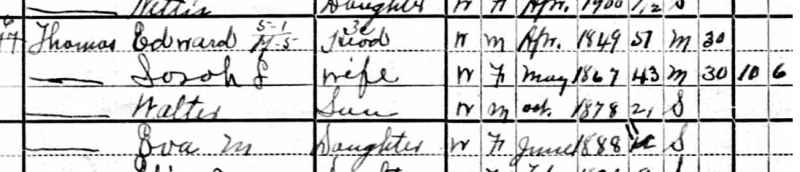 Nettie Daughter W F Apr. 1900 1/12 S
Thomas Edward 5-1 M-5 Head W M Apr. 1849 51 M 30
—— Sarah L Wife W F May 1867 43 M 30 10 6
—— Walter Son W M Oct. 1878 21 S
—— Eva M Daughter W F June 1888 11 S